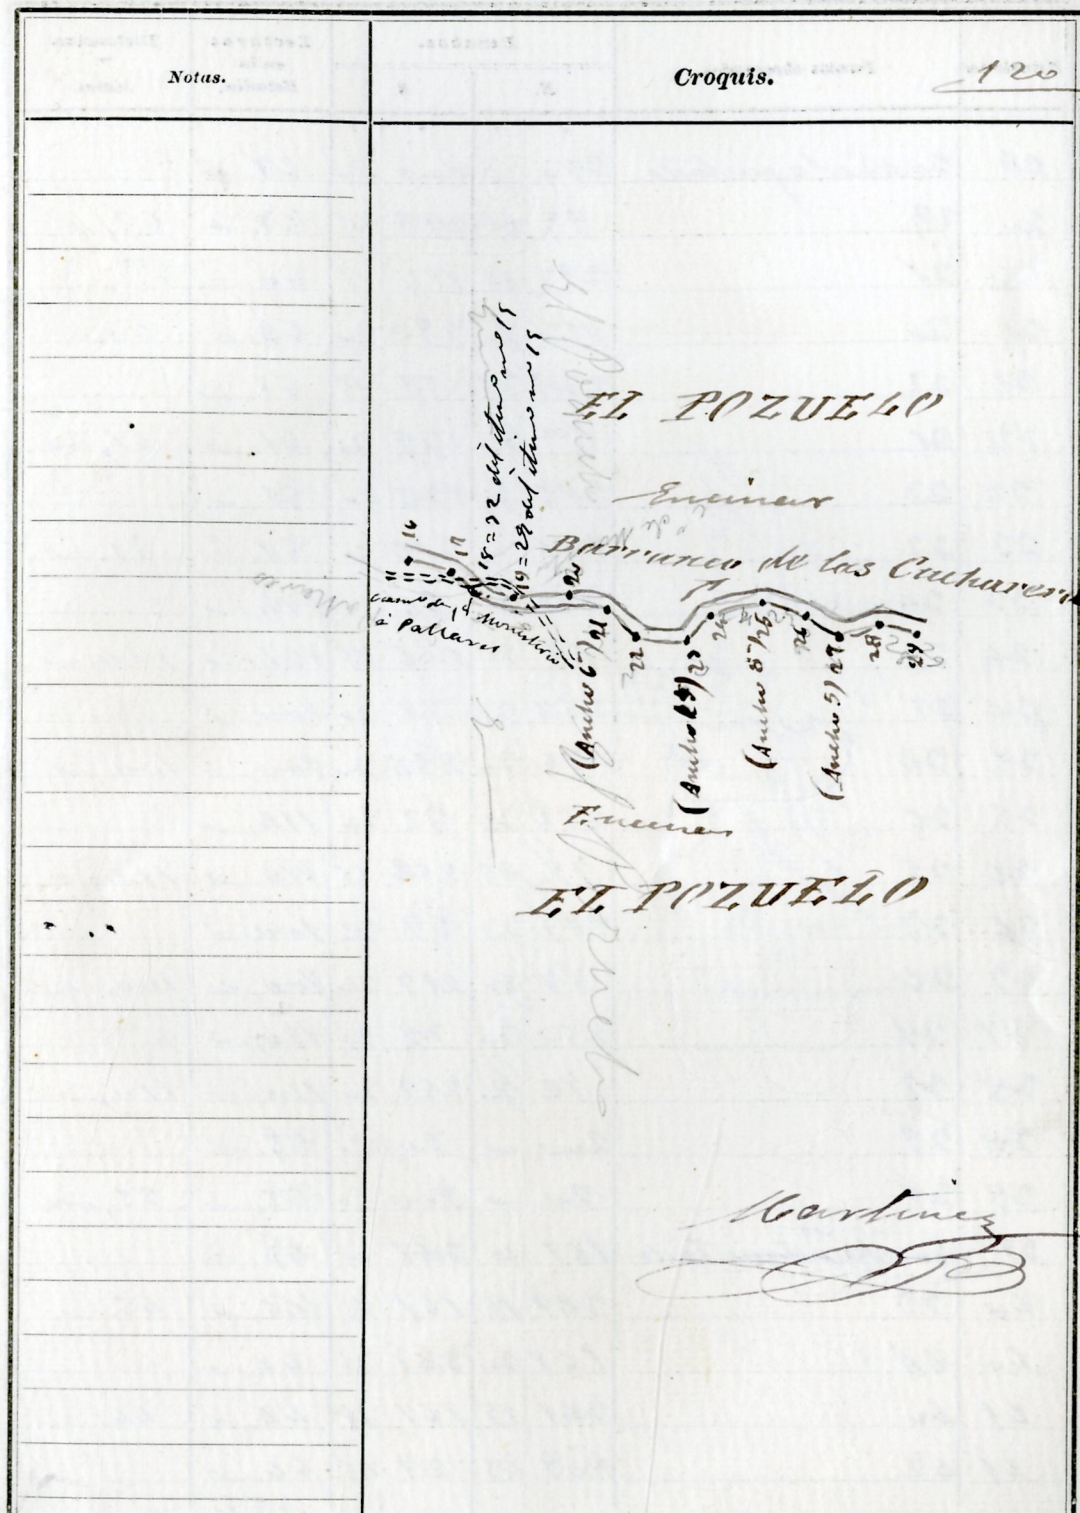 Notas.
Croquis.
120
EL POZUELO
Encinar
Barranco de las Cucharera
18=32 del itin.º nº 15
19=29 del itin.º nº 15
16
17
20
21
22
23
24
25
26
27
28
29
Camino de
Monesterio
à Pallares
(Ancho 6)
(Ancho 8)
(Ancho 5)
Encinar
EL POZUELO
El Pozuelo
Martinez